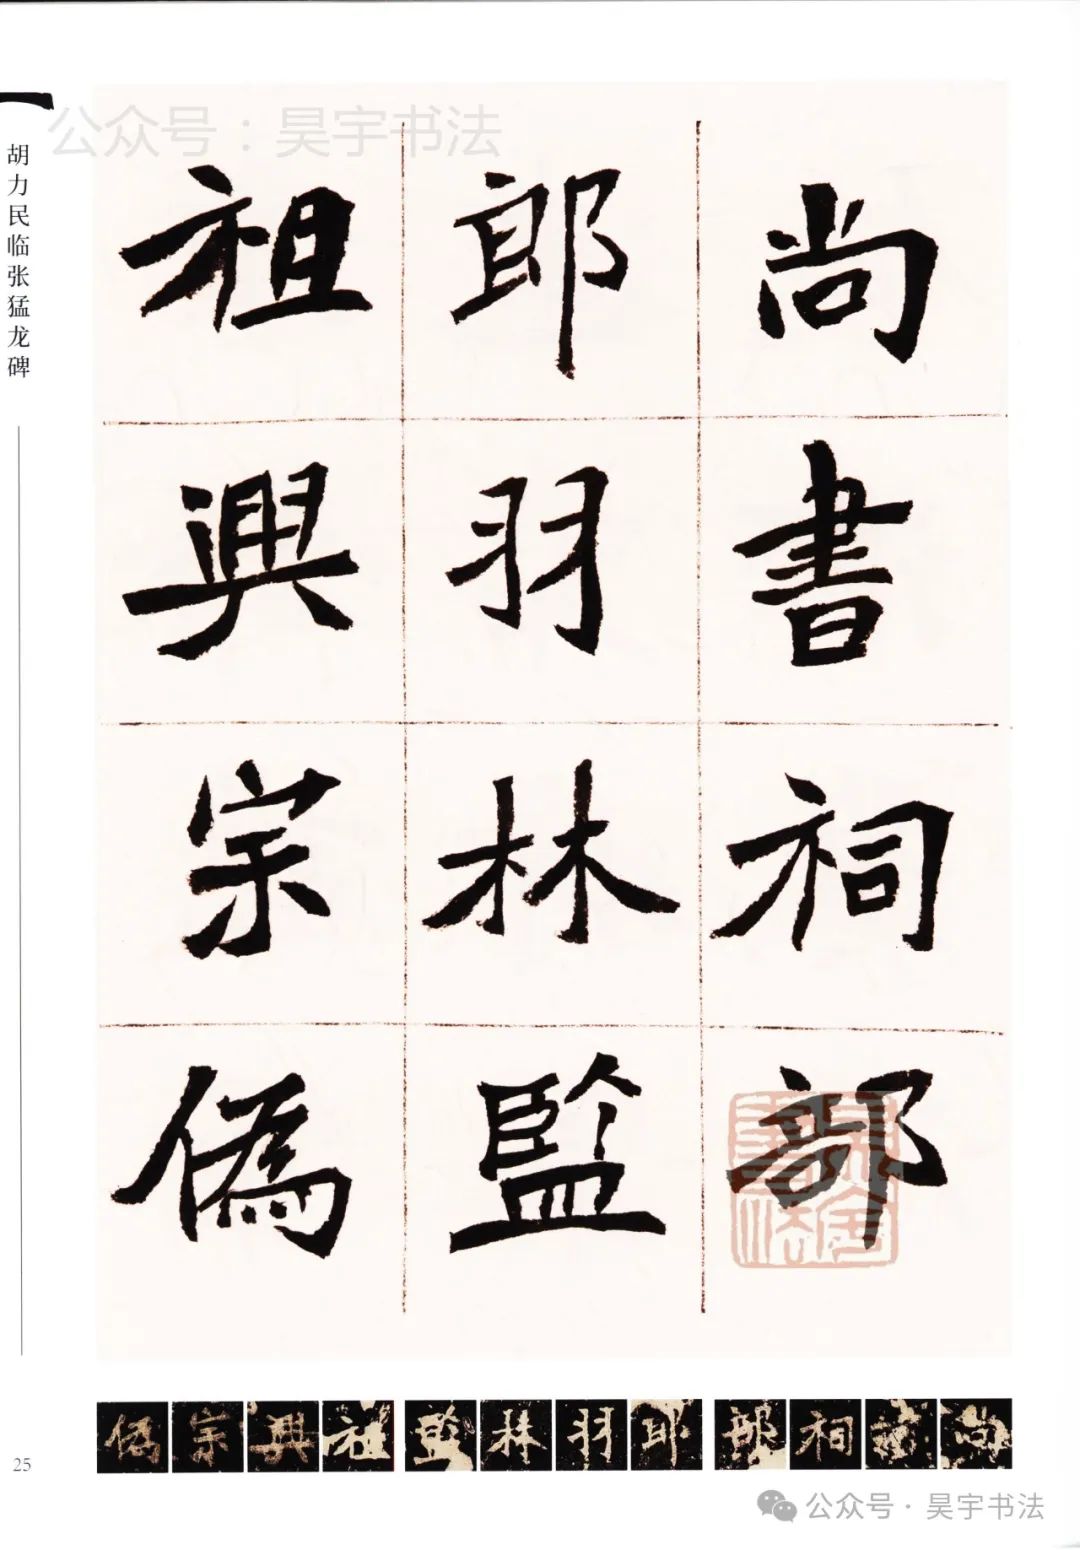 公众号：昊宇书法
胡力民临张猛龙碑
尚書祠部
郎羽林監
祖興宗偽
偽宗興祖監林羽郎部祠書尚
25
公众号·昊宇书法